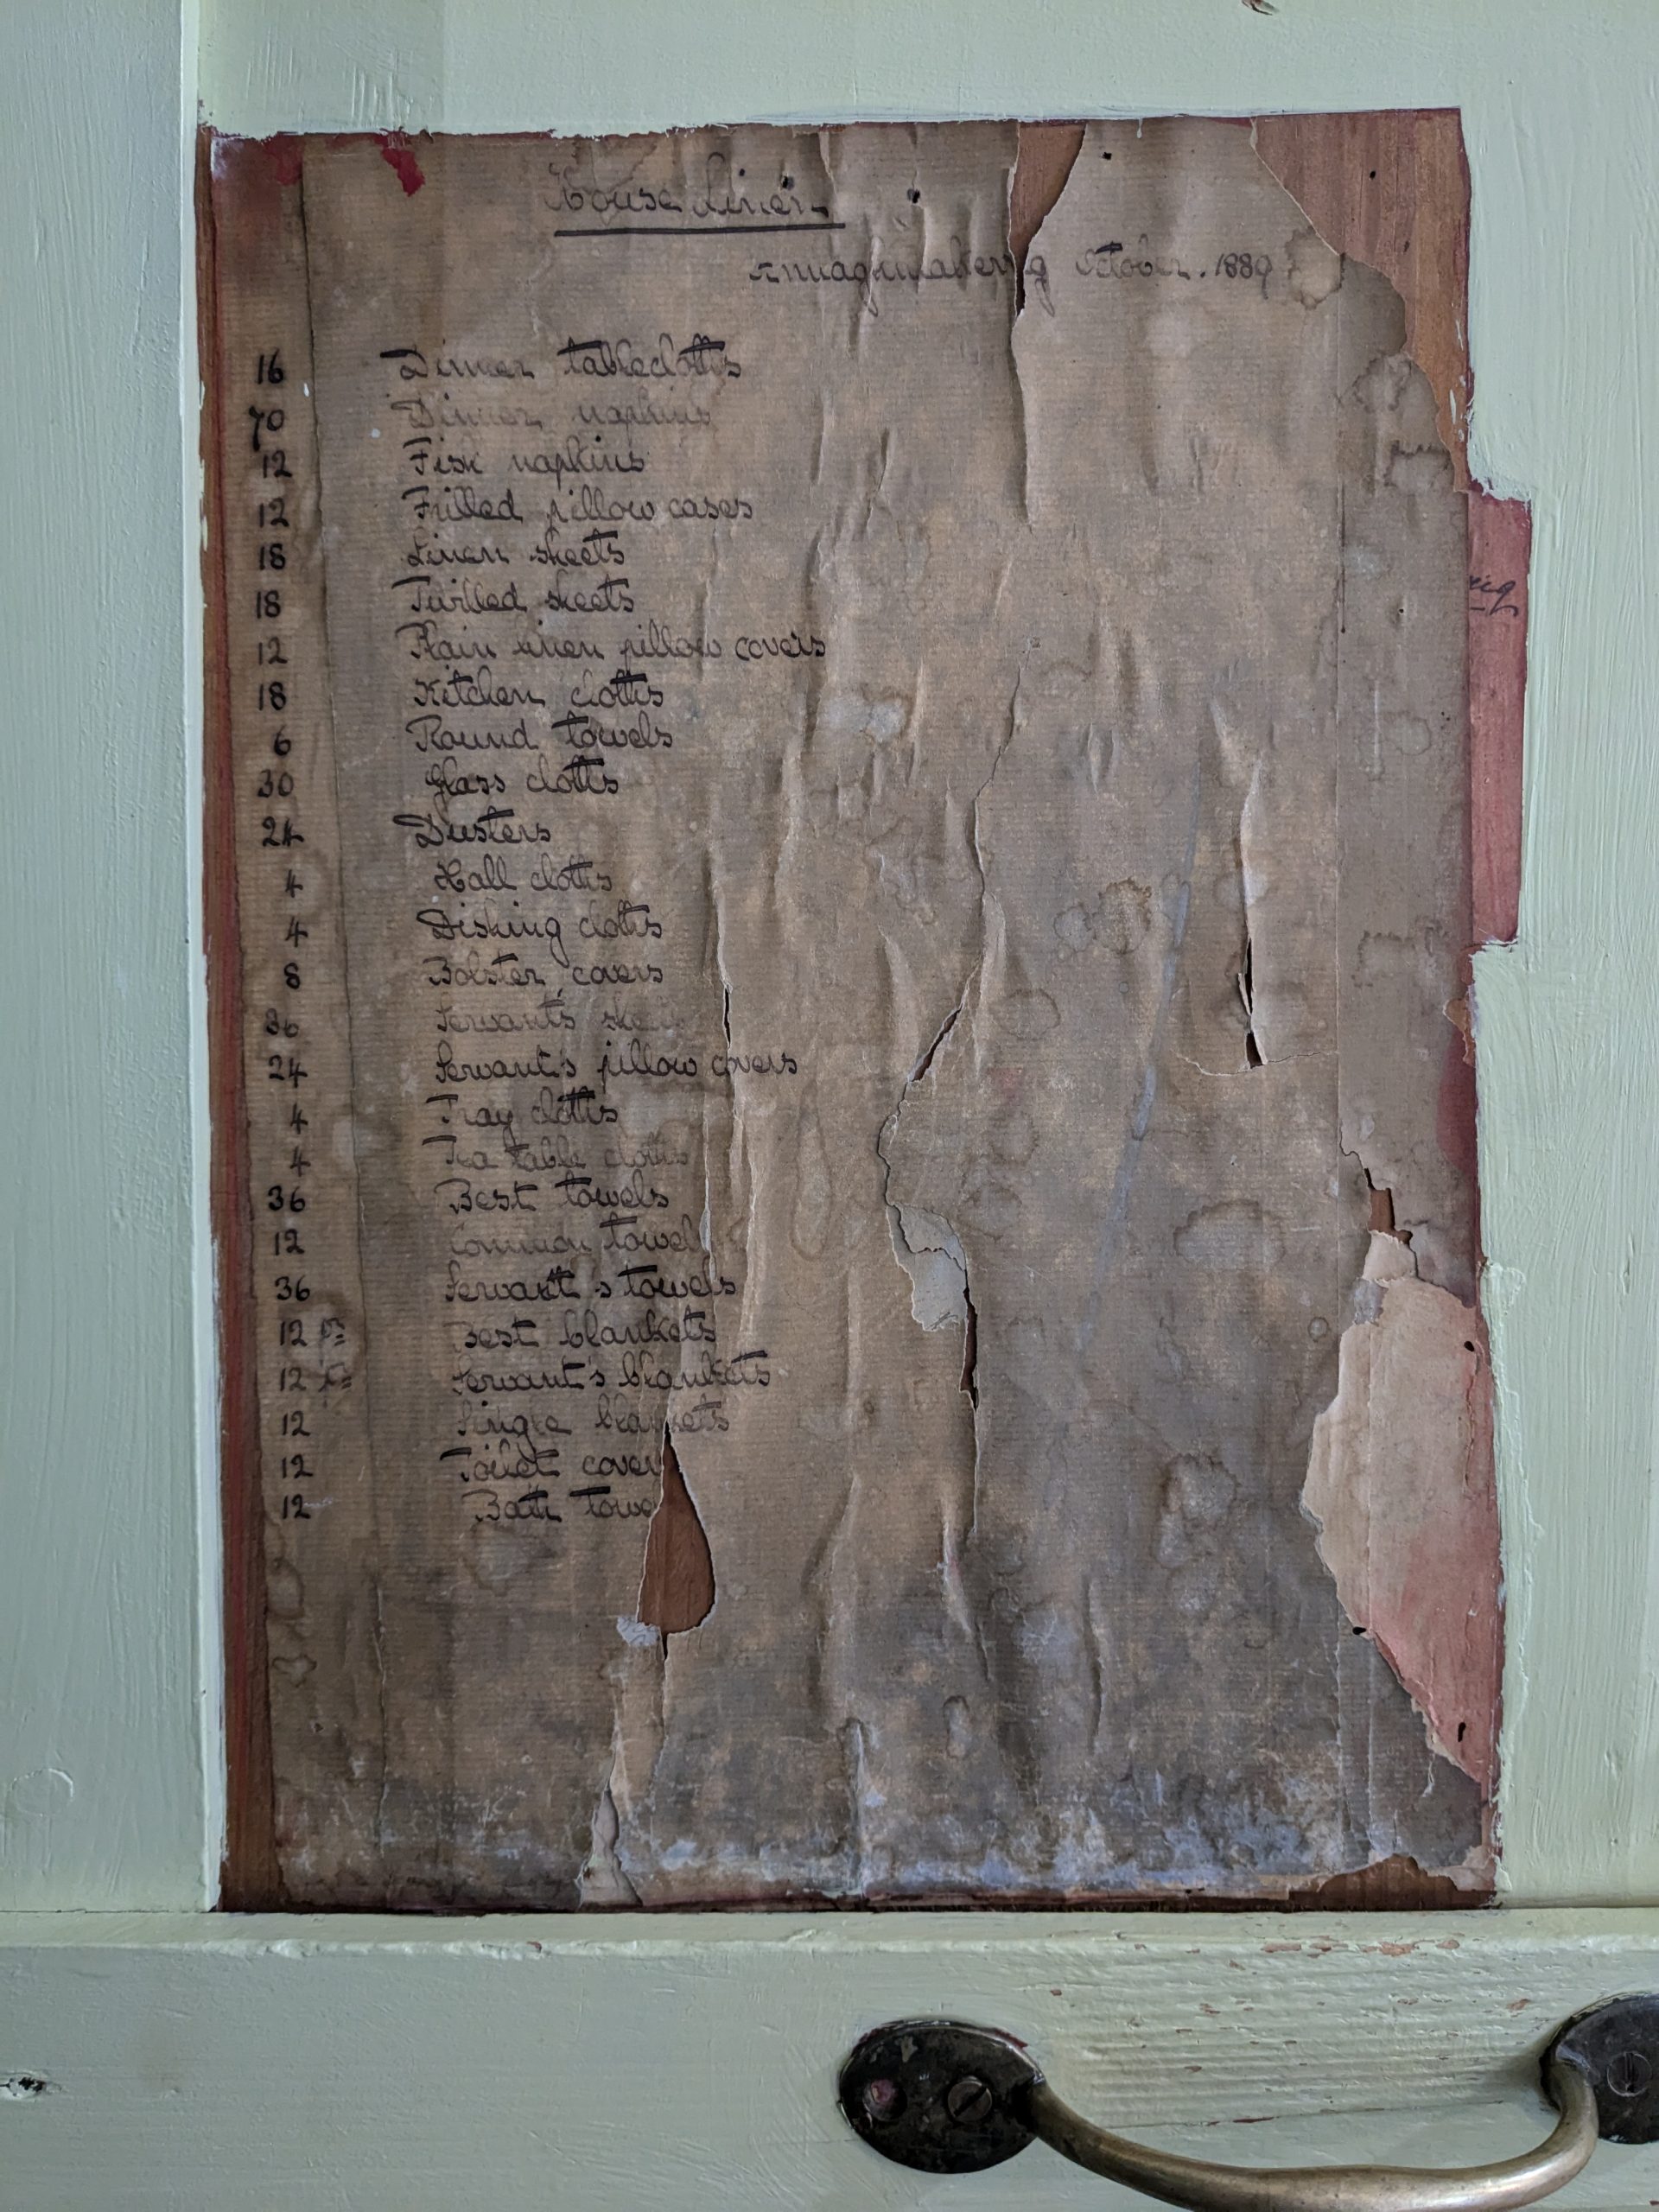 House Linen
October. 1889
16 Dinner tablecloths
70 Dinner napkins
12 Fish napkins
12 Frilled pillow cases
18 Linen sheets
18 Twilled sheets
12 Plain linen pillow covers
18 Kitchen cloths
6 Round towels
30 Glass cloths
24 Dusters
4 Hall cloths
4 Dishing cloths
8 Bolster covers
36 Servant's sheets
24 Servant's pillow covers
4 Tray cloths
4 Tea table cloths
36 Best towels
12 Common towel
36 Servant's towels
12 Best blankets
12 Servant's blankets
12 Single blankets
12 Toilet cover
12 Bath towe